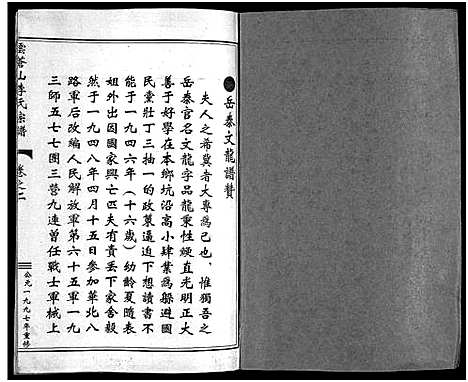 岳泰文龍譜贊
夫人之希冀者大專為己也惟獨吾之
岳泰官名文龍字品龍秉性梗直光明正大
善于好學在本鄉坑沿高小肄業為躲避國
民黨壯丁三抽一的政策逼迫下想讀書不
能于一九四六年(十六歲)幼齡夏隨表
姐外出因國家興亡匹夫有責丟下家舍毅
然于一九四八年四月十五日參加華北八
路軍后改編人民解放軍第六十五軍一九
三師五七七團三營九連曾任戰士軍械上
李氏宗譜
卷之二
公元一九九七年重修